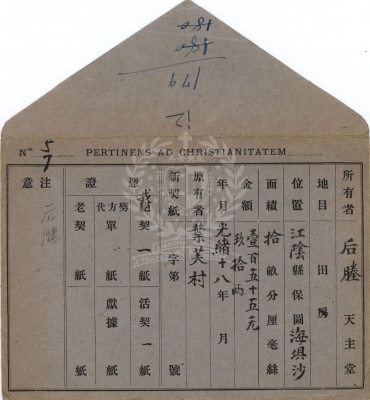 180
180
179
12
Nᵒˢ 5/7 PERTINENS AD CHRISTIANITATEM
所有者 后塍 天主堂
地目 田房
位置 江陰縣保圖海埧沙
面績 拾畝分厘毫絲
金額 壹百五十五元
玖拾兩
年月 光緒十八年 月
原有者 葉芙村
新契紙 字第 號
憑證 絕契一紙 活契一紙
勞方代單 紙 獻據 紙
老契 紙 紙
注意
后塍